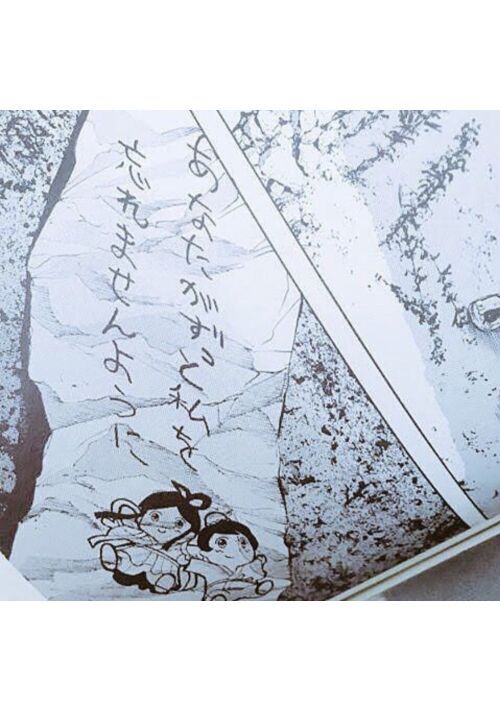 あなたがずっと私を
忘れませんように